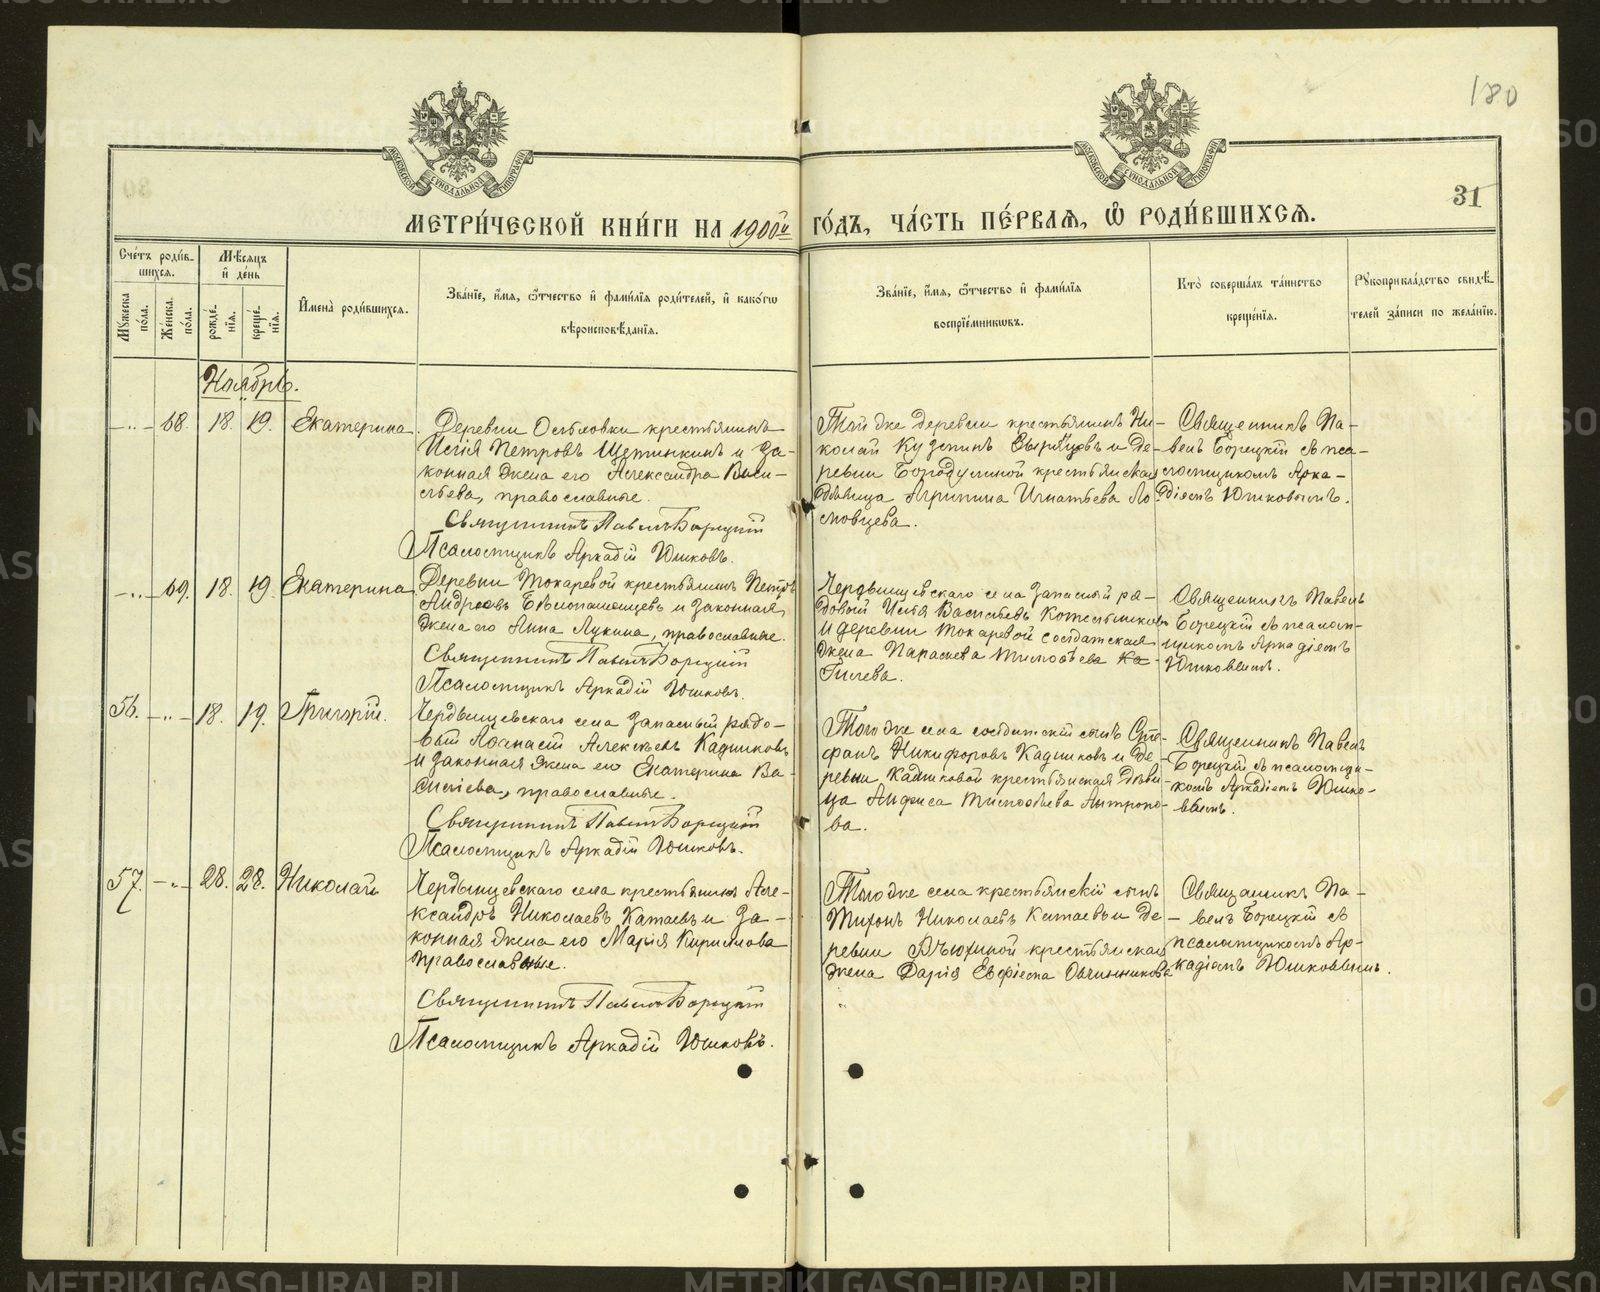 180
31
МЕТРИ́ЧЕСКОЙ КНИ́ГИ НА 1900й ГО́ДЪ, ЧА́СТЬ ПЕ́РВАЯ, Ѽ РОДИ́ВШИХСЯ.
Сче́тъ роди́в-
шихся.
Мꙋ́жеска по́ла.
Же́нска. по́ла.
Мѣ́сяцъ и̂ де́нь
рожде́нїя.
креще́нїя.
И̂мена̀ роди́вшихся.
Зва́нїе, и́мя, ѻ́тчество и̂ фами́лїя роди́телей, и̂ како́гѡ
вѣроисповѣ́данїя.
Зва́нїе, и́мя, ѻ́тчество и̂ фами́лїя
воспрїе́мникѡвъ.
Кто̀ соверша́лъ та́инство
креще́нїя.
Рꙋкоприкла́дство свидѣ́-
телей за́писи по жела́нїю.
Ноябрь.
—„— 68. 18. 19. Екатерина.
Деревни крестьянинъ
Петровъ Щетинкинъ и за-
конная жена его Александра Васи-
льева, православные.
Священникъ Павелъ Борецкій
Псаломщикъ Аркадій Юшковъ.
Той же деревни крестьянинъ Ни-
колай Кузминъ и де-
ревни Бородулиной крестьянская
дѣвица Агрипина Игнатьева Ло-
мовцева.
Священникъ Па-
велъ Борецкій съ пса-
ломщикомъ Арка-
діемъ Юшковымъ.
—„— 69. 18. 19. Екатерина
Деревни Токаревой крестьянинъ Петръ
Андреевъ Бѣлопашенцевъ и законная
жена его Анна Лукина, православные.
Священникъ Павелъ Борецкій
Псаломщикъ Аркадій Юшковъ.
села запасный ря-
довой Илья Васильевъ Котельниковъ
и деревни Токаревой солдатская
жена Параскева Тимофѣева Ка-
гилева.
Священникъ Павелъ
Борецкій съ псалом-
щикомъ Аркадіемъ
Юшковымъ.
56. —„— 18. 19. Григорій.
села запасный рядо-
вый Афанасій Алексѣевъ Кадниковъ
и законная жена его Екатерина Ва-
силіева, православные.
Священникъ Павелъ Борецкій
Псаломщикъ Аркадій Юшковъ.
Того же села солдатскій сынъ Сте-
фанъ Никифоровъ Кадниковъ и де-
ревни крестьянская дѣви-
ца Анфиса Тимофѣева Антропо-
ва.
Священникъ Павелъ
Борецкій съ псаломщи-
комъ Аркадіемъ Юшко-
вымъ.
57. —„— 28. 28. Николай
села крестьянинъ Але-
ксандръ Николаевъ Катаевъ и за-
конная жена его Марія Кирилова
православные.
Священникъ Павелъ Борецкій
Псаломщикъ Аркадій Юшковъ.
Того же села крестьянскій сынъ
Тихонъ Николаевъ Катаевъ и де-
ревни Вьюхиной крестьянская
жена Дарія Евфіема Овчинникова
Священникъ Па-
велъ Борецкій съ
псаломщикомъ Ар-
кадіемъ Юшковымъ.